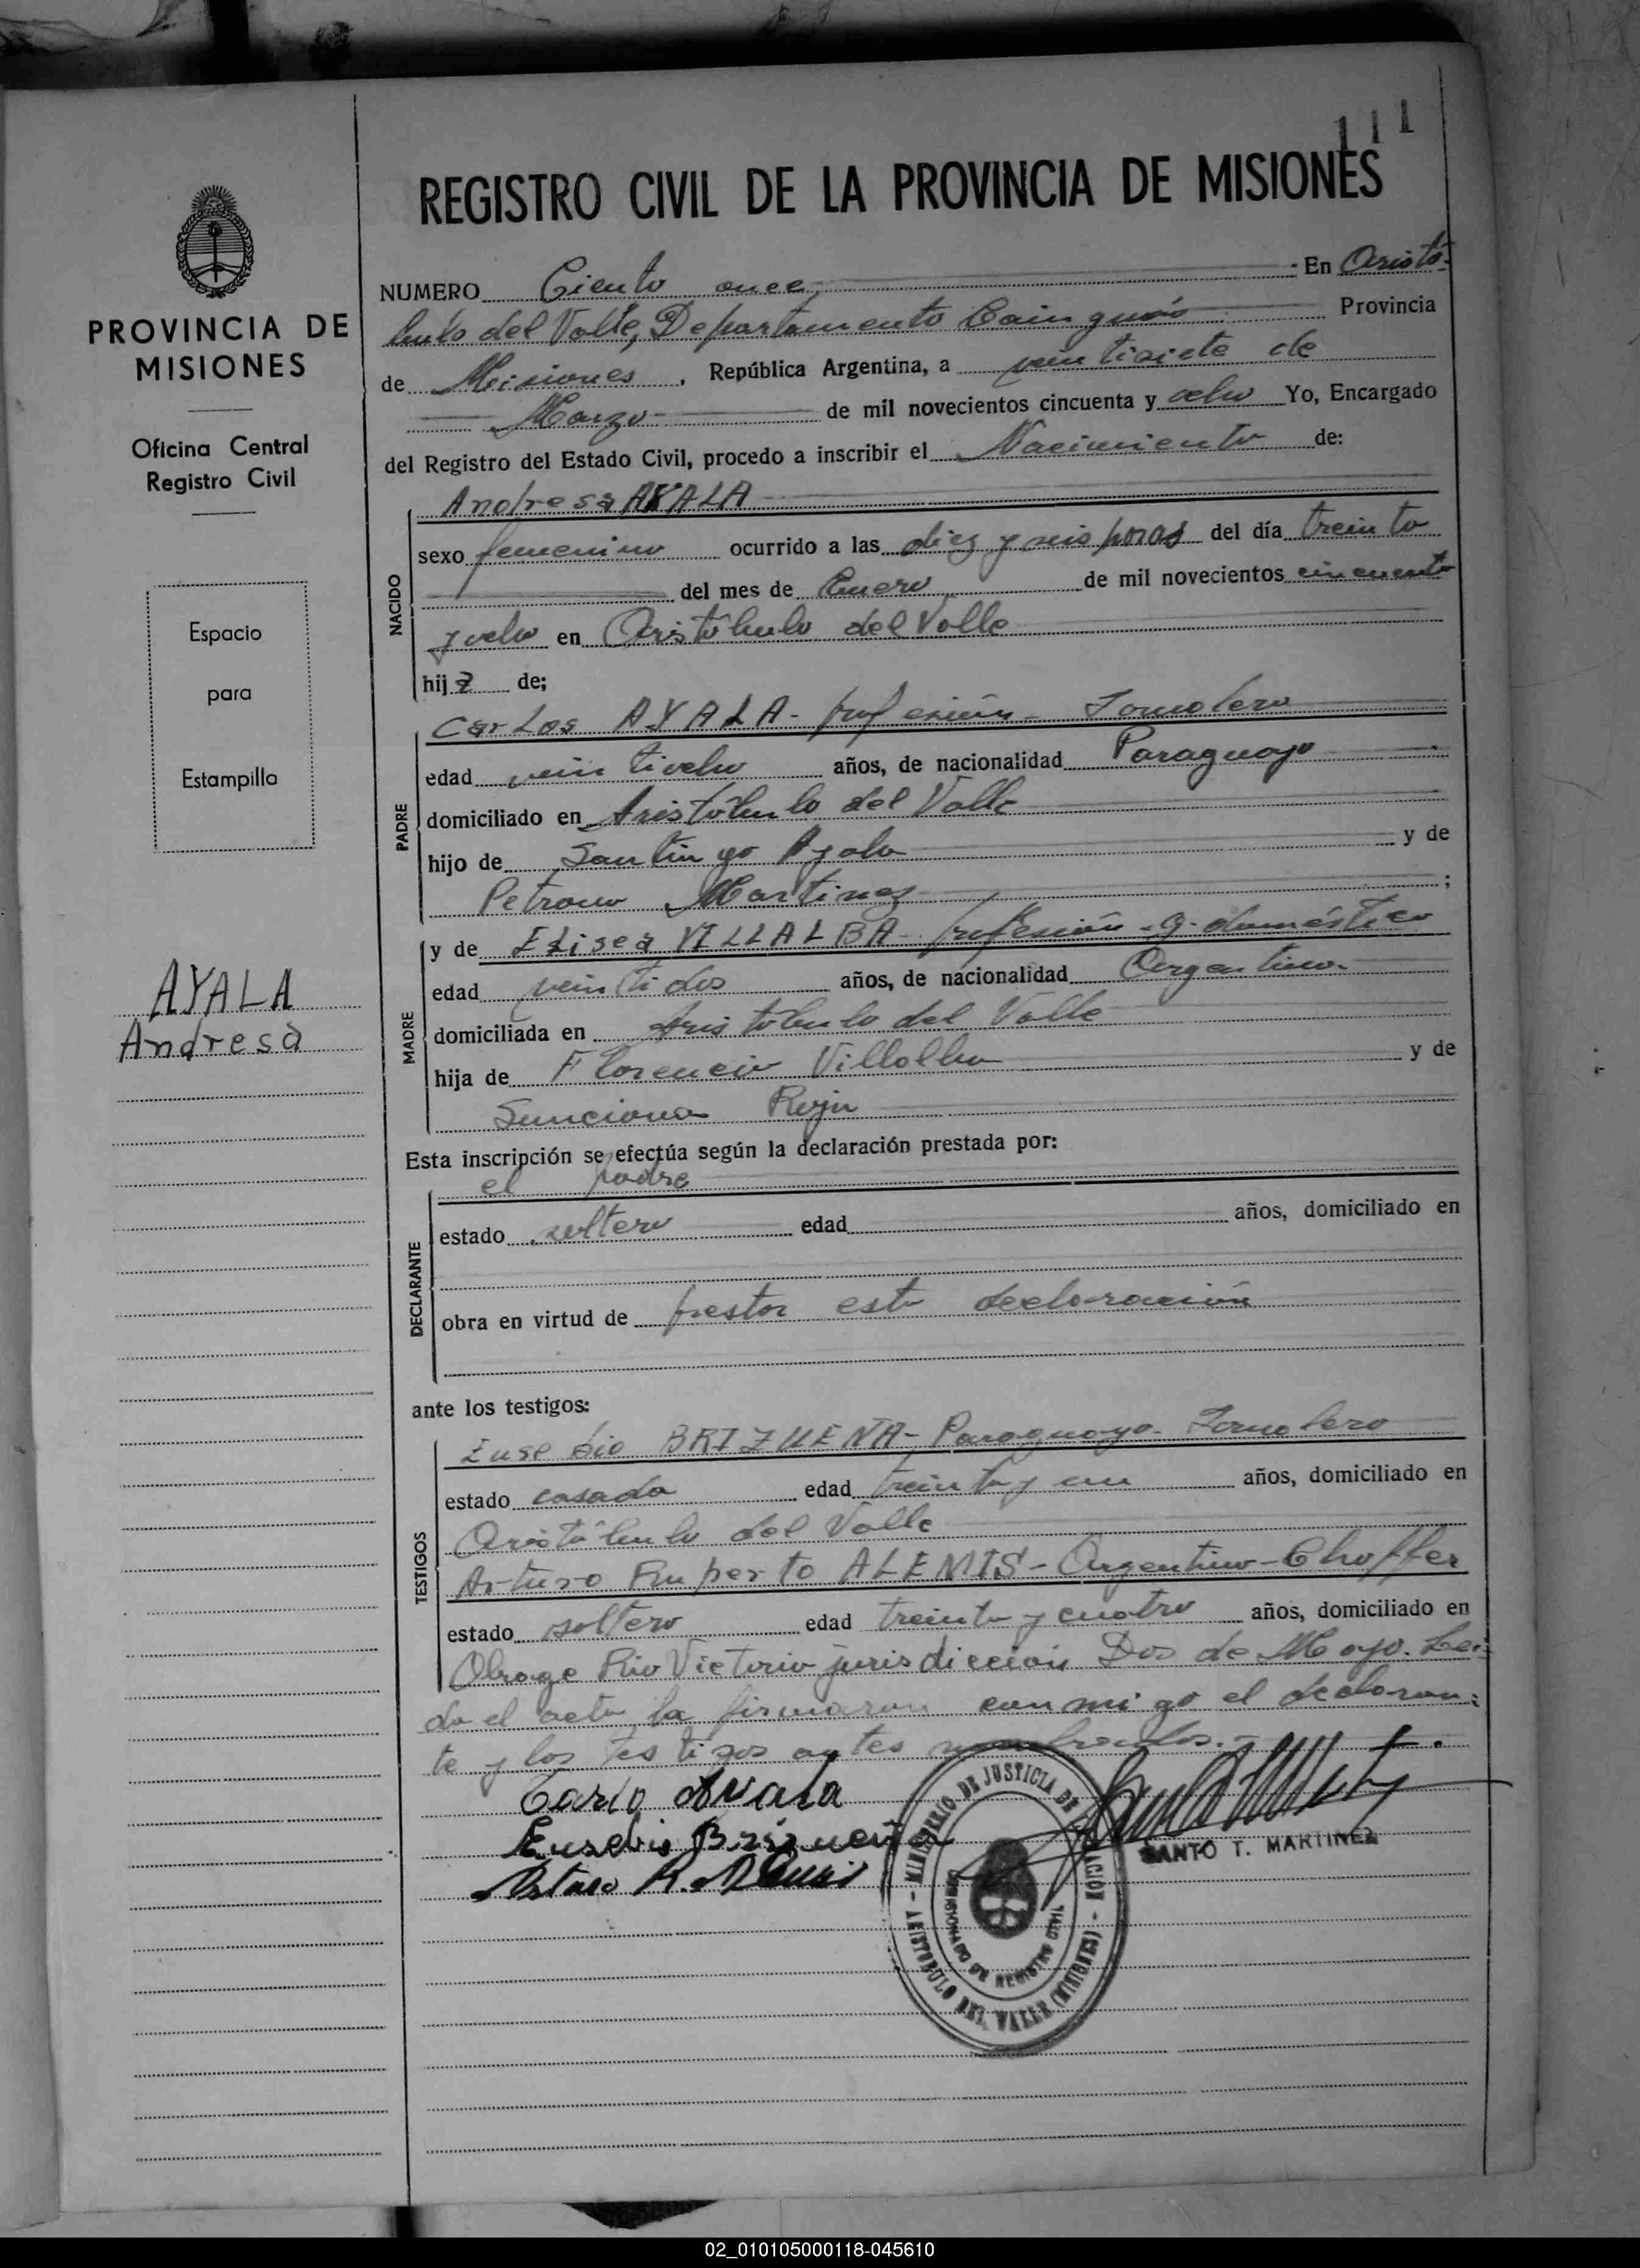 111
REGISTRO CIVIL DE LA PROVINCIA DE MISIONES
PROVINCIA DE
MISIONES
Oficina Central
Registro Civil
Espacio
para
Estampilla
AYALA
Andresa
NUMERO Ciento once En Aristó-
bulo del Valle, Departamento Cainguás Provincia
de Misiones, República Argentina, a veintisiete de
Marzo de mil novecientos cincuenta y ocho Yo, Encargado
del Registro del Estado Civil, procedo a inscribir el Nacimiento de:
NACIDO
Andresa AYALA
sexo femenino ocurrido a las diez y seis horas del día treinta
del mes de Enero de mil novecientos cincuenta
y ocho en Aristóbulo del Valle
hija de;
PADRE
Carlos AYALA - profesión - Jornalero
edad veintiocho años, de nacionalidad Paraguayo
domiciliado en Aristóbulo del Valle
hijo de Santiago Ayala y de
Petrona Martinez ;
MADRE
y de Elisea VILLALBA - profesión - q. doméstico
edad veintidos años, de nacionalidad Argentina
domiciliada en Aristóbulo del Valle
hija de Florencio Villalba y de
Sunciona
Esta inscripción se efectúa según la declaración prestada por:
DECLARANTE
el padre
estado soltero edad años, domiciliado en
obra en virtud de prestar esta declaración
ante los testigos:
TESTIGOS
Eusebio BRIZUENA - Paraguayo - Jornalero
estado casado edad treinta y un años, domiciliado en
Aristóbulo del Valle
Arturo Ruperto ALEMIS - Argentino - Choffer
estado soltero edad treinta y cuatro años, domiciliado en
Obraje Rio Victoria jurisdicción Dos de Mayo. Lei-
da el acta la firmaron conmigo el declaran-
te y los testigos antes nombrados.-
Carlo Ayala
Eusebio Brizuena
Arturo R. Alemis
MINISTERIO DE JUSTICIA DE LA NACION - ARISTOBULO DEL VALLE (MISIONES) -
COMISIONADO DE REGISTRO CIVIL
SANTO T. MARTINEZ
02_010105000118-045610